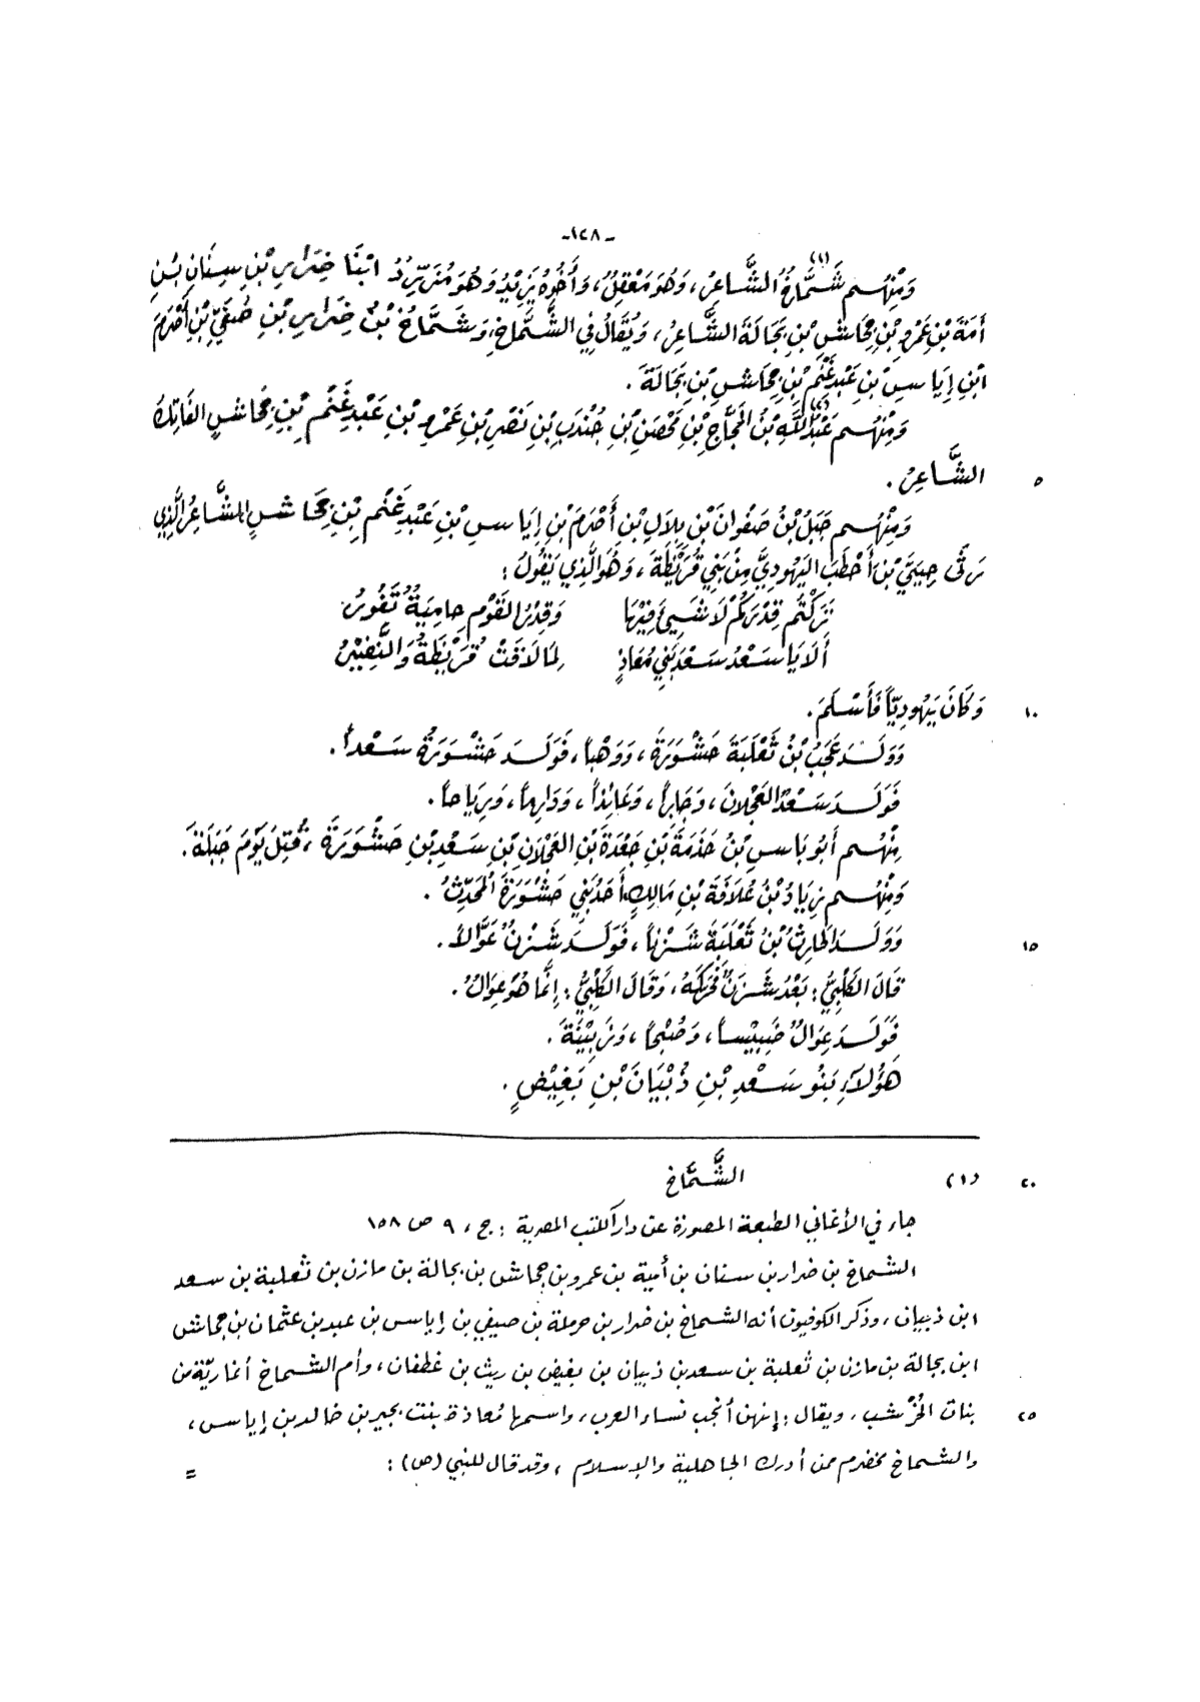 -١٤٨-
وَمِنْهُم شَمَّاخُ(١) الشَّاعِرُ، وَهُوَ مَعْقِلُ، وَأَخُوهُ يَزِيْدُ وَهُوَ مُزَرِّدُ ابْنَا ضِرَارِ بْنِ سِنَانِ بْنِ
أَمَةَ بْنِ عَمْرِو بْنِ جِحَاشِ بْنِ بَجَالَةَ الشَّاعِرُ، وَيُقَالُ فِي الشَّمَّاخِ، وَشَمَّاخُ بْنُ ضِرَارِ بْنِ صَيْفَيِّ بْنِ أَصْرَمَ
ابْنِ إِيَاسِ بْنِ عَبْدِ غَنْمِ بْنِ جِحَاشِ بْنِ بَجَالَةَ.
وَمِنْهُم عَبْدُ اللَّهِ(٢) بْنُ الحَجَّاجِ بْنِ مُحْصَنِ بْنِ جُنْدَبِ بْنِ نَصْرِ بْنِ عَمْرِو بْنِ عَبْدِ غَنْمِ بْنِ جِحَاشِ الفَاتِكُ
الشَّاعِرُ. ٥
وَمِنْهُم جَبَلُ بْنُ صَفْوَانَ بْنِ بِلَالِ بْنِ أَصْرَمَ بْنِ إِيَاسِ بْنِ عَبْدِ غَنْمِ بْنِ جِحَاشِ الشَّاعِرُ الَّذِي
رَثَى حِيَيَّ بْنَ أَخْطَبَ اليَهُودِيَّ مِنْ بَنِي قُرَيْظَةَ، وَهُوَ الَّذِي يَقُولُ:
تَرَكْتُمْ قِدْرَكُمْ لَا شَيْءَ فِيْهَا وَقِدْرُ القَوْمِ حَامِيَةٌ تَفُورُ
أَلَا يَا سَعْدُ سَعْدَ بَنِي مُعَاذٍ لِمَا لَاقَتْ قُرَيْظَةُ وَالنَّضِيْرُ
وَكَانَ يَهُودِيّاً فَأَسْلَمَ. ١٠
وَوَلَدَ عَجَبُ بْنُ ثَعْلَبَةَ حَشْوَرَةَ، وَوَهْباً، فَوَلَدَ حَشْوَرَةُ سَعْداً.
فَوَلَدَ سَعْدٌ العَجْلَانَ، وَجَابِراً، وَعَائِذاً، وَدَارِماً، وَرِيَاحاً.
مِنْهُم أَبُو يَاسِ بْنُ حَذَمَةَ بْنِ جَعْدَةَ بْنِ العَجْلَانِ بْنِ سَعْدِ بْنِ حَشْوَرَةَ، قُتِلَ يَوْمَ جَبَلَةَ.
وَمِنْهُم زِيَادُ بْنُ عُلَاقَةَ بْنِ مَالِكٍ أَحَدُ بَنِي حَشْوَرَةَ المُحَدِّثُ.
وَوَلَدَ الحَارِثُ بْنُ ثَعْلَبَةَ شَزْناً، فَوَلَدَ شَزْنٌ عَوَّالاً. ١٥
قَالَ الكَلْبِيُّ: بَعْدُ شَزَنٌ فَحَرَّكَهُ، وَقَالَ الكَلْبِيُّ: إِنَّمَا هُوَ عِوَالٌ.
فَوَلَدَ عِوَالٌ خَبِيْساً، وَصُبْحاً، وَزَبِيْنَةَ.
هَؤُلَاءِ بَنُو سَعْدِ بْنِ ذُبْيَانَ بْنِ بَغِيْضٍ.
(١) الشَّمَّاخ ٢٠
جاء في الأغاني الطبعة المصورة عن دار الكتب المصرية: ج، ٩ ص ١٥٨
الشماخ بن ضرار بن سنان بن أمية بن عمرو بن جحاش بن بجالة بن مازن بن ثعلبة بن سعد
ابن ذبيان، وذكر الكوفيون أنه الشماخ بن ضرار بن حرملة بن صيفي بن إياس بن عبد بن عثمان بن جحاش
ابن بجالة بن مازن بن ثعلبة بن سعد بن ذبيان بن بغيض بن ريث بن غطفان، وأم الشماخ أنمارية من
بنات الخُرْشب، ويقال: إنهن أنجب نساء العرب، واسمها مُعاذة بنت بجير بن خالد بن إياس، ٢٥
والشماخ مخضرم ممن أدرك الجاهلية والإسلام، وقد قال للنبي (ص): =